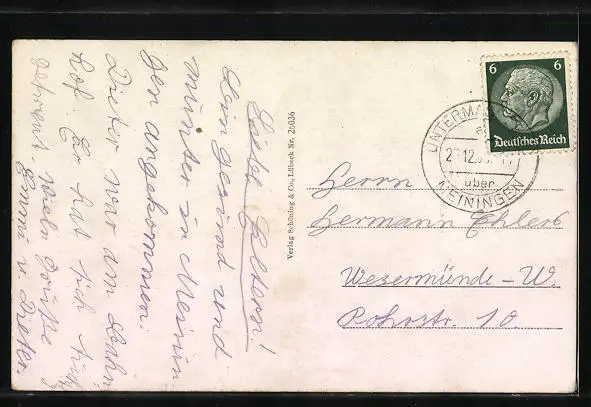 Liebe Eltern!
Bin gesund und
munter in Meinin
gen angekommen.
Dieter war am Bahn
hof. Er hat sich
gefreut. Viele Grüße
Emmi u. Dieter.
Verlag Schöning & Co., Lübeck Nr. 26036
6 6
Deutsches Reich
über
MEININGEN
Herrn
Hermann Ehlers
Wesermünde-W.
Rohrstr. 10.